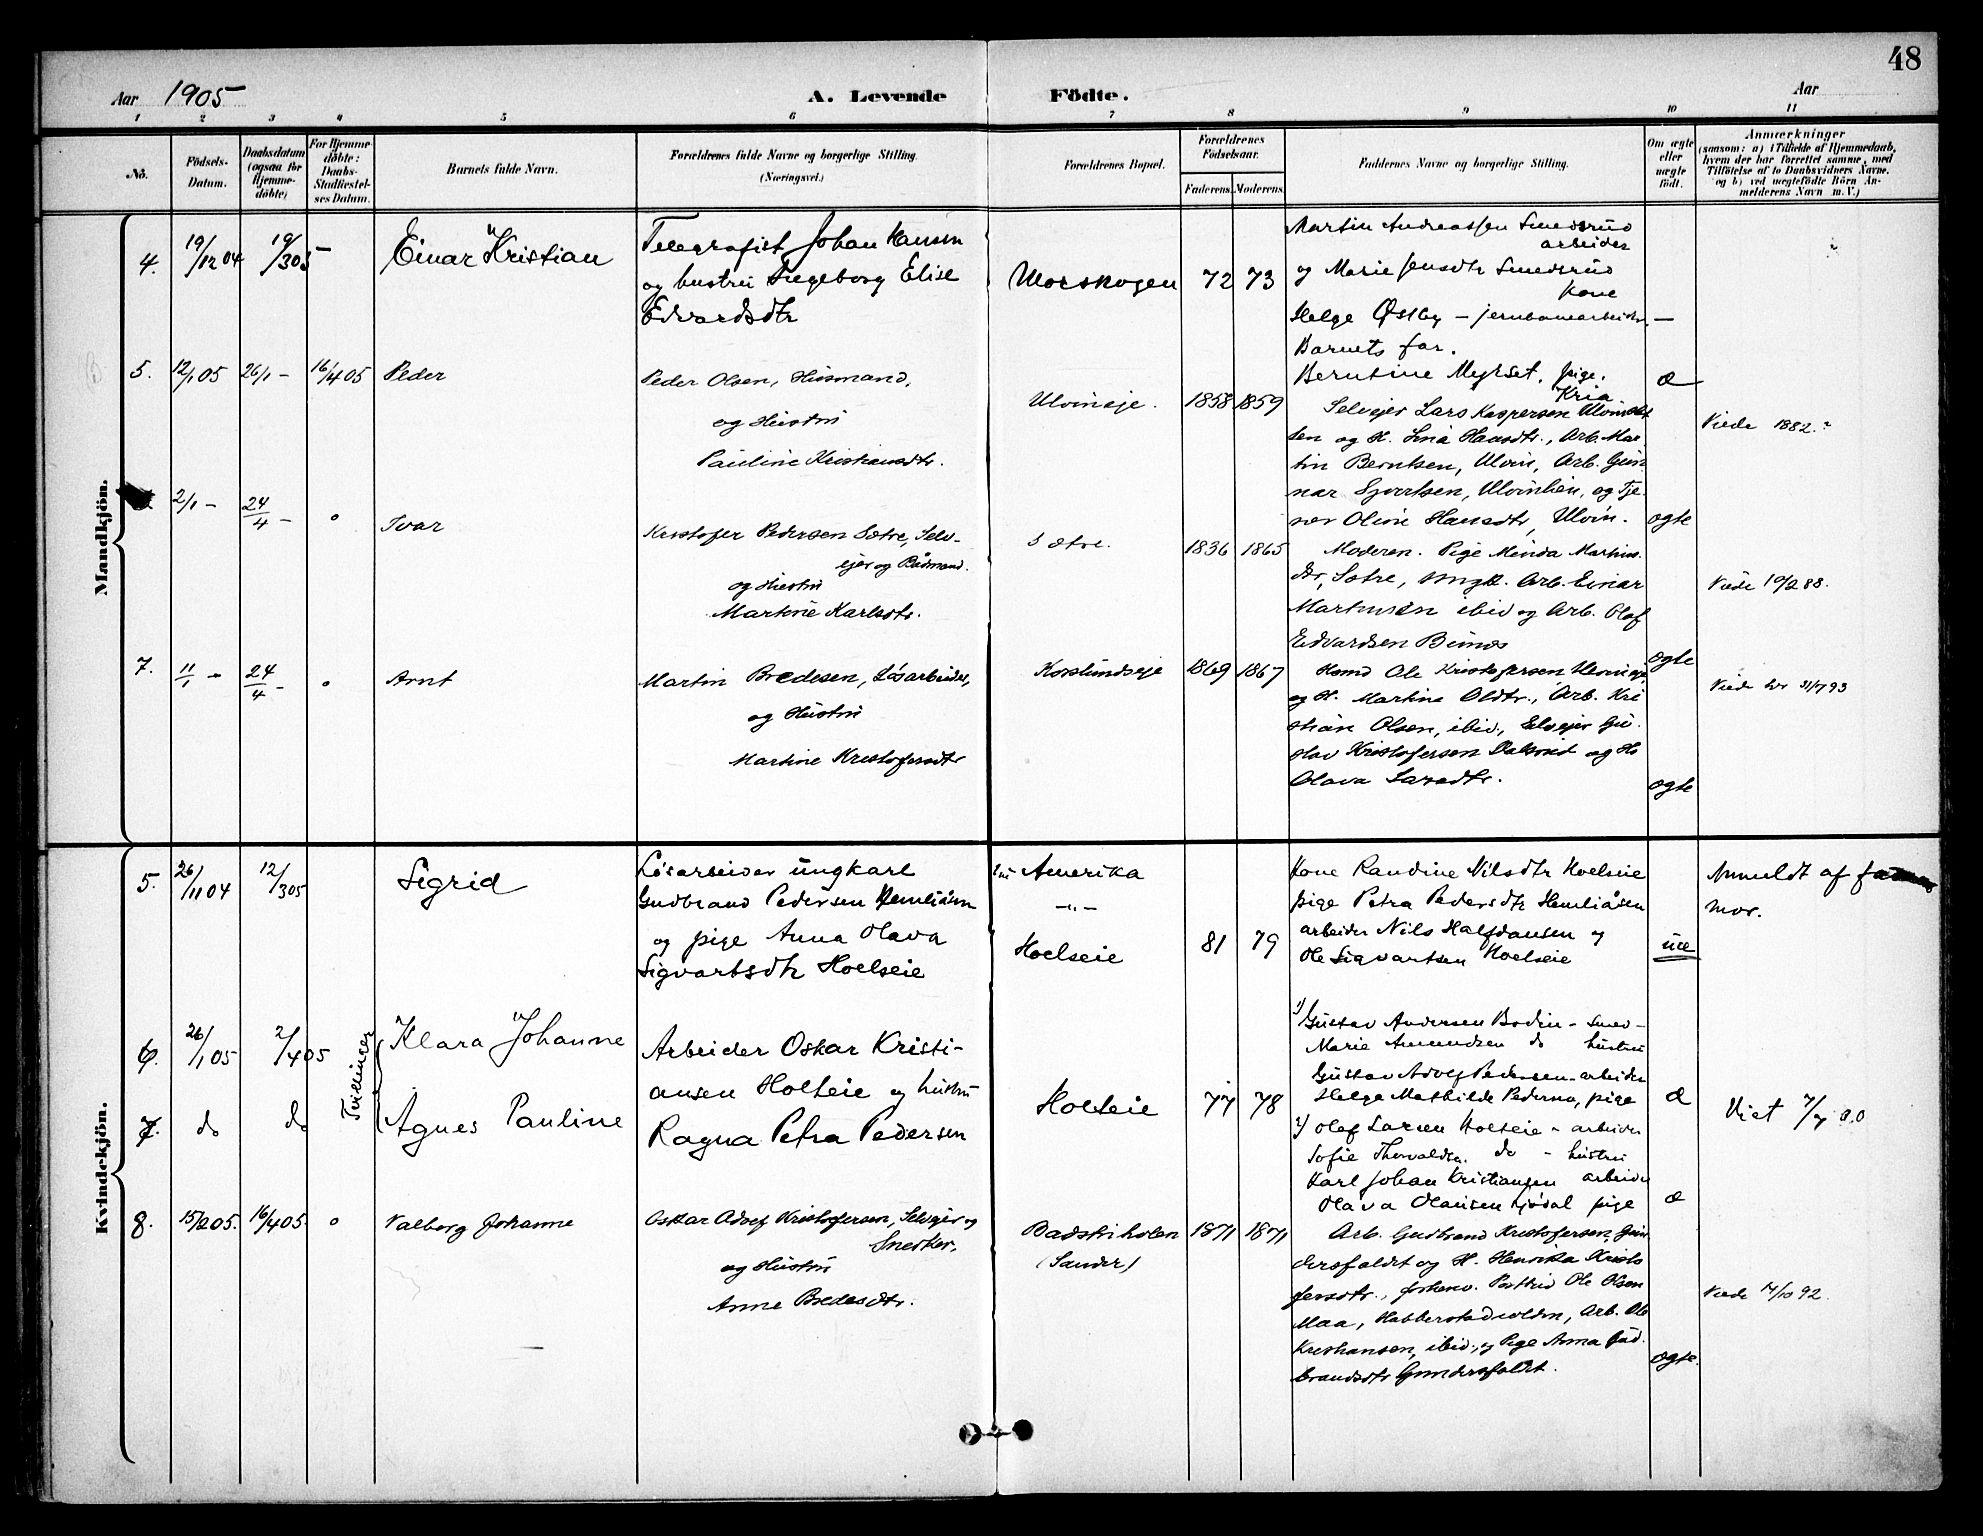 48
Aar 1905
A. Levende Födte.
Aar
1 2 3 4 5 6 7 8 9 10 11
No.
Födsels-Datum.
Daabsdatum (ogsaa for Hjemme-döbte)
For Hjemme-döbte: Daabs-Stadfæstel-ses Datum.
Barnets fulde Navn.
Forældrenes fulde Navne og borgerlige Stilling.
(Næringsvei.)
Forældrenes Bopæl.
Forældrenes Födselsaar.
Faderens. Moderens.
Faddernes Navne og borgerlige Stilling.
Om ægte eller uægte födt.
Anmærkninger
(saasom: a) i Tilfælde af Hjemmedaab,
hvem der har forrettet samme, med
Tilföielse af to Daabsvidners Navne,
og b) ved uægtefödte Börn An-
melderens Navn m. V.)
Mandkjön.
4. 19/12 04 19/3 05 – Einar Kristian
Telegrafist Johan Hansen
og hustru Ingeborg Elise
Edvardsdtr
Morskogen 72 73
Martin Andreassen Smedsrud
arbeider
og Marie Jensdtr Smedsrud
Kone
Helge Østby – jernbanearbeider –
Barnets far.
Berntine Myrset, pige.
Kria
æ
5. 12/1 05 26/1 – 16/4 05 Peder
Peder Olsen, Husmand,
og Hustru
Pauline Kristiansdtr.
Ulvineje. 1858 1859
Selvejer Lars Kaspersen
sen og H. Lina Hansdtr., Arb. Mar-
tin Berntsen, Ulvin, Arb. Gun-
nar Syvertsen, Ulvinlien, og Tje-
ner Oline Hansdtr, Ulvin.
ægte
Viede 1882.?
2/1 – 24/4 – o Ivar
Kristofer Pedersen Sætre, Selv-
ejer og Rådmand.
og Hustru
Martine Karlsdtr.
Sætre. 1836 1865
Moderen. Pige Minda Martins-
dtr, Sætre, Arb. Einar
Martinsen ibid og Arb. Olaf
Edvardsen
ægte
Viede 10/2 88.
7. 11/1 – 24/4 – o Arnt
Martin Bredesen, Løsarbeider,
og Hustru
Martine Kristofersdtr
Korslundseje 1869 1867
Hsmd Ole Kristofersen
og H. Martine Oldtr., Arb. Kri-
stian Olsen, ibid., Selvejer Gu-
stav Kristofersen og H.
Olava Larsdtr.
ægte
Viede her 31/7 93
Kvindekjön.
5. 26/11 04 12/3 05 Sigrid
Løsarbeider ungkarl
Gudbrand Pedersen Hemliåsen
og pige Anna Olava
Sigvartsdtr Hoelseie
Amerika
– " –
Hoelseie 81 79
Kone Randine Nilsdtr Hoelseie
pige Petra Pedersdtr Hemliåsen
arbeider Nils Halfdansen og
Ole Sigvartsen Hoelseie
uæ
Anmeldt af
mor.
6. 26/1 05 2/4 05 Tvillinger Klara Johanne
7. do do Agnes Pauline
Arbeider Oskar Kristi-
ansen Holteie og hustru
Ragna Petra Pedersen
Holteie 77 78
1) Gustav Andersen Bodin – smed –
Marie Amundsen do hustru
Gustav Adolf Pedersen arbeider
Helga Mathilde Pederna, pige
æ
2) Olaf Larsen Holteie – arbeider
Sofie Thorvaldsen do – hustru
Karl Johan Kristiansen arbeider
Olava Olausen pige
æ
Viet 7/7 00
8. 15/2 05. 16/4 05. o Valborg Johanne
Oskar Adolf Kristofersen, Selvejer og
Snedker,
og Hustru
Anne Bredesdtr.
Badstuholen
(Sander)
1871 1871
Arb. Gudbrand Kristofersen, Gun-
dersfaldet og H. Henrika Kristo-
fersdtr., forhenv. Ole Olsen
Maa, Habberstadvolden, Arb. Ole
Kristiansen, ibid., og Pige Anna Gud-
brandsdtr Gundersfaldet.
ægte.
Viede 14/10 92.